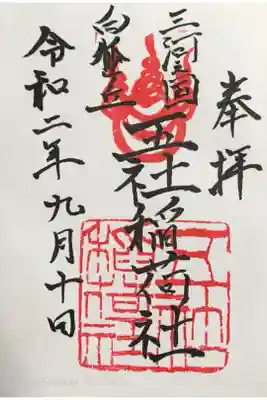 奉拝
三河国
五社稲荷社
白狐之丘
令和二年九月十日